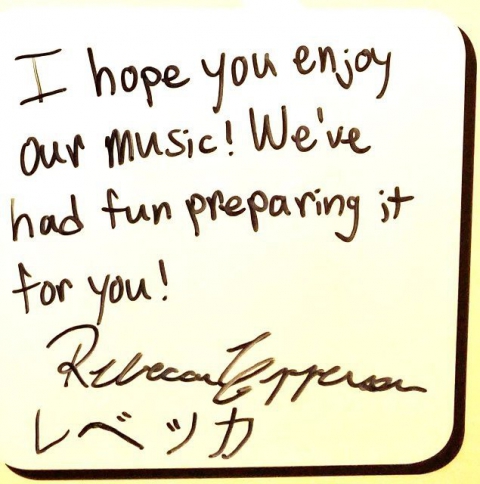 I hope you enjoy
our music! We've
had fun preparing it
for you!
Rebecca Epperson
レベッカ